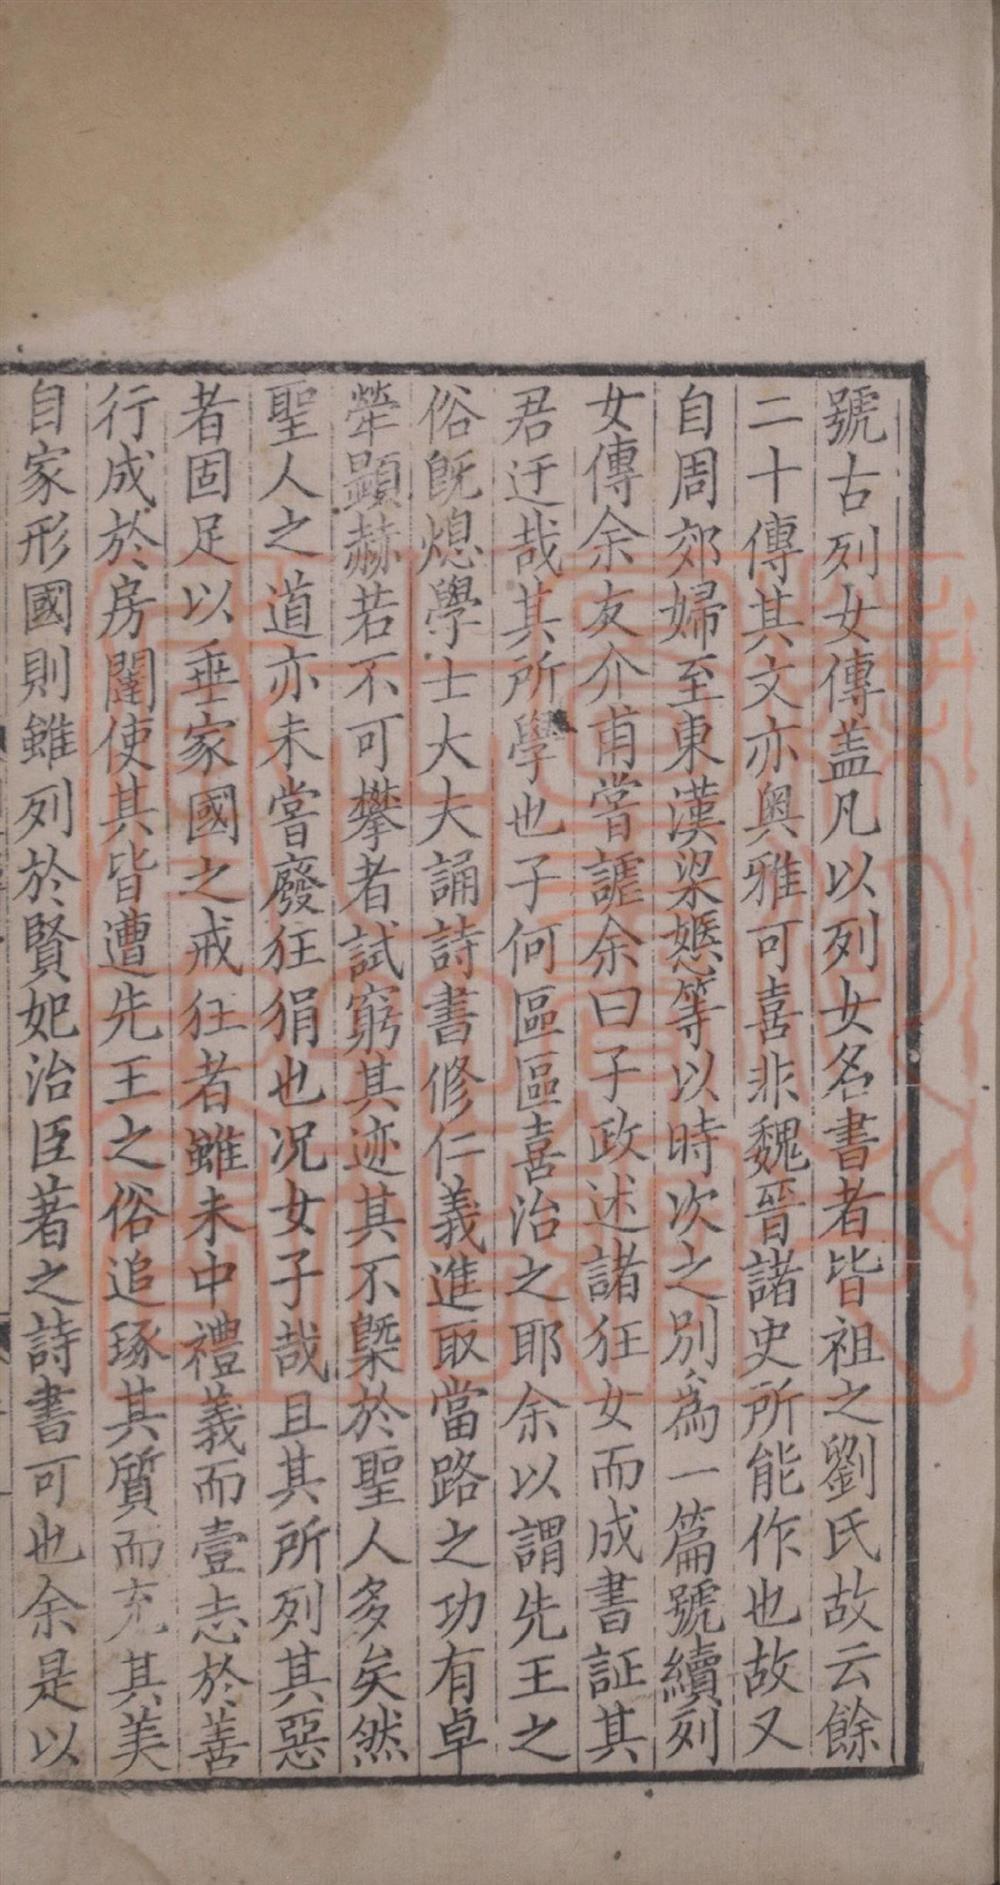 號古列女傳蓋凡以列女名書者皆祖之劉氏故云餘
二十傳其文亦奧雅可喜非魏晉諸史所能作也故又
自周郊婦至東漢梁嫕等以時次之別為一篇號續列
女傳余友介甫嘗謔余曰子政述諸狂女而成書証其
君迂哉其所學也子何區區喜治之耶余以謂先王之
俗旣熄學士大夫誦詩書修仁義進取當路之功有卓
犖顯赫若不可攀者試窮其迹其不槩於聖人多矣然
聖人之道亦未嘗廢狂狷也况女子哉且其所列其惡
者固足以垂家國之戒狂者雖未中禮義而壹志於善
行成於房闥使其皆遭先王之俗追琢其質而充其美
自家形國則雖列於賢妃治臣著之詩書可也余是以